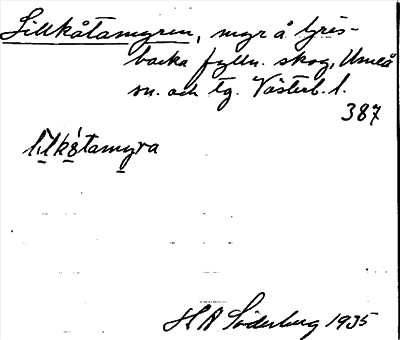 Lillkåtamyren, myr å Gris-
backa fylln. skog, Umeå
sn. och tg. Västerb. l.
387
lílkå̀tamyra
H A Söderberg 1935